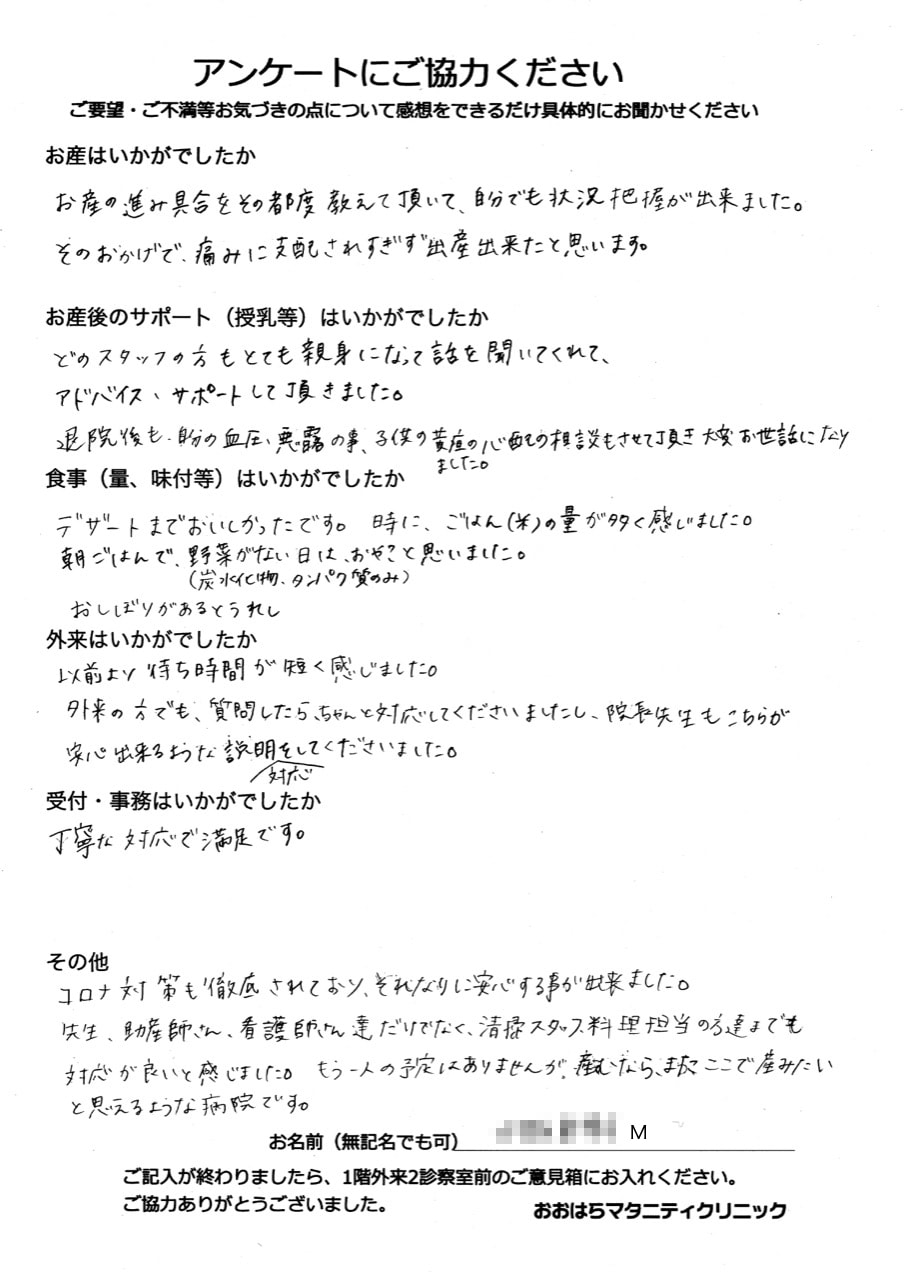 アンケートにご協力ください
ご要望・ご不満等お気づきの点について感想をできるだけ具体的にお聞かせください
お産はいかがでしたか
お産の進み具合をその都度教えて頂いて、自分でも状況把握が出来ました。
そのおかげで、痛みに支配されすぎず出産出来たと思います。
お産後のサポート（授乳等）はいかがでしたか
どのスタッフの方もとても親身になって話を聞いてくれて、
アドバイス、サポートして頂きました。
退院後も、自分の血圧、悪露の事、子供の黄疸の心配もの相談もさせて頂き大変お世話になり
ました。
食事（量、味付等）はいかがでしたか
デザートまでおいしかったです。 時に、ごはん(米)の量が多く感じました。
朝ごはんで、野菜がない日は、おや?と思いました。
(炭水化物、タンパク質のみ)
おしぼりがあるとうれし
外来はいかがでしたか
以前より待ち時間が短く感じました。
外来の方でも、質問したら、ちゃんと対応してくださいましたし、院長先生もこちらが
安心出来るような説明をしてくださいました。
対応
受付・事務はいかがでしたか
丁寧な対応で満足です。
その他
コロナ対策も徹底されており、それなりに安心する事が出来ました。
先生、助産師さん、看護師さん達だけでなく、清掃スタッフ、料理担当の方達までも
対応が良いと感じました。 もう一人の予定はありませんが、産むなら、またここで産みたい
と思えるような病院です。
お名前（無記名でも可） M
ご記入が終わりましたら、1階外来2診察室前のご意見箱にお入れください。
ご協力ありがとうございました。
おおはらマタニティクリニック